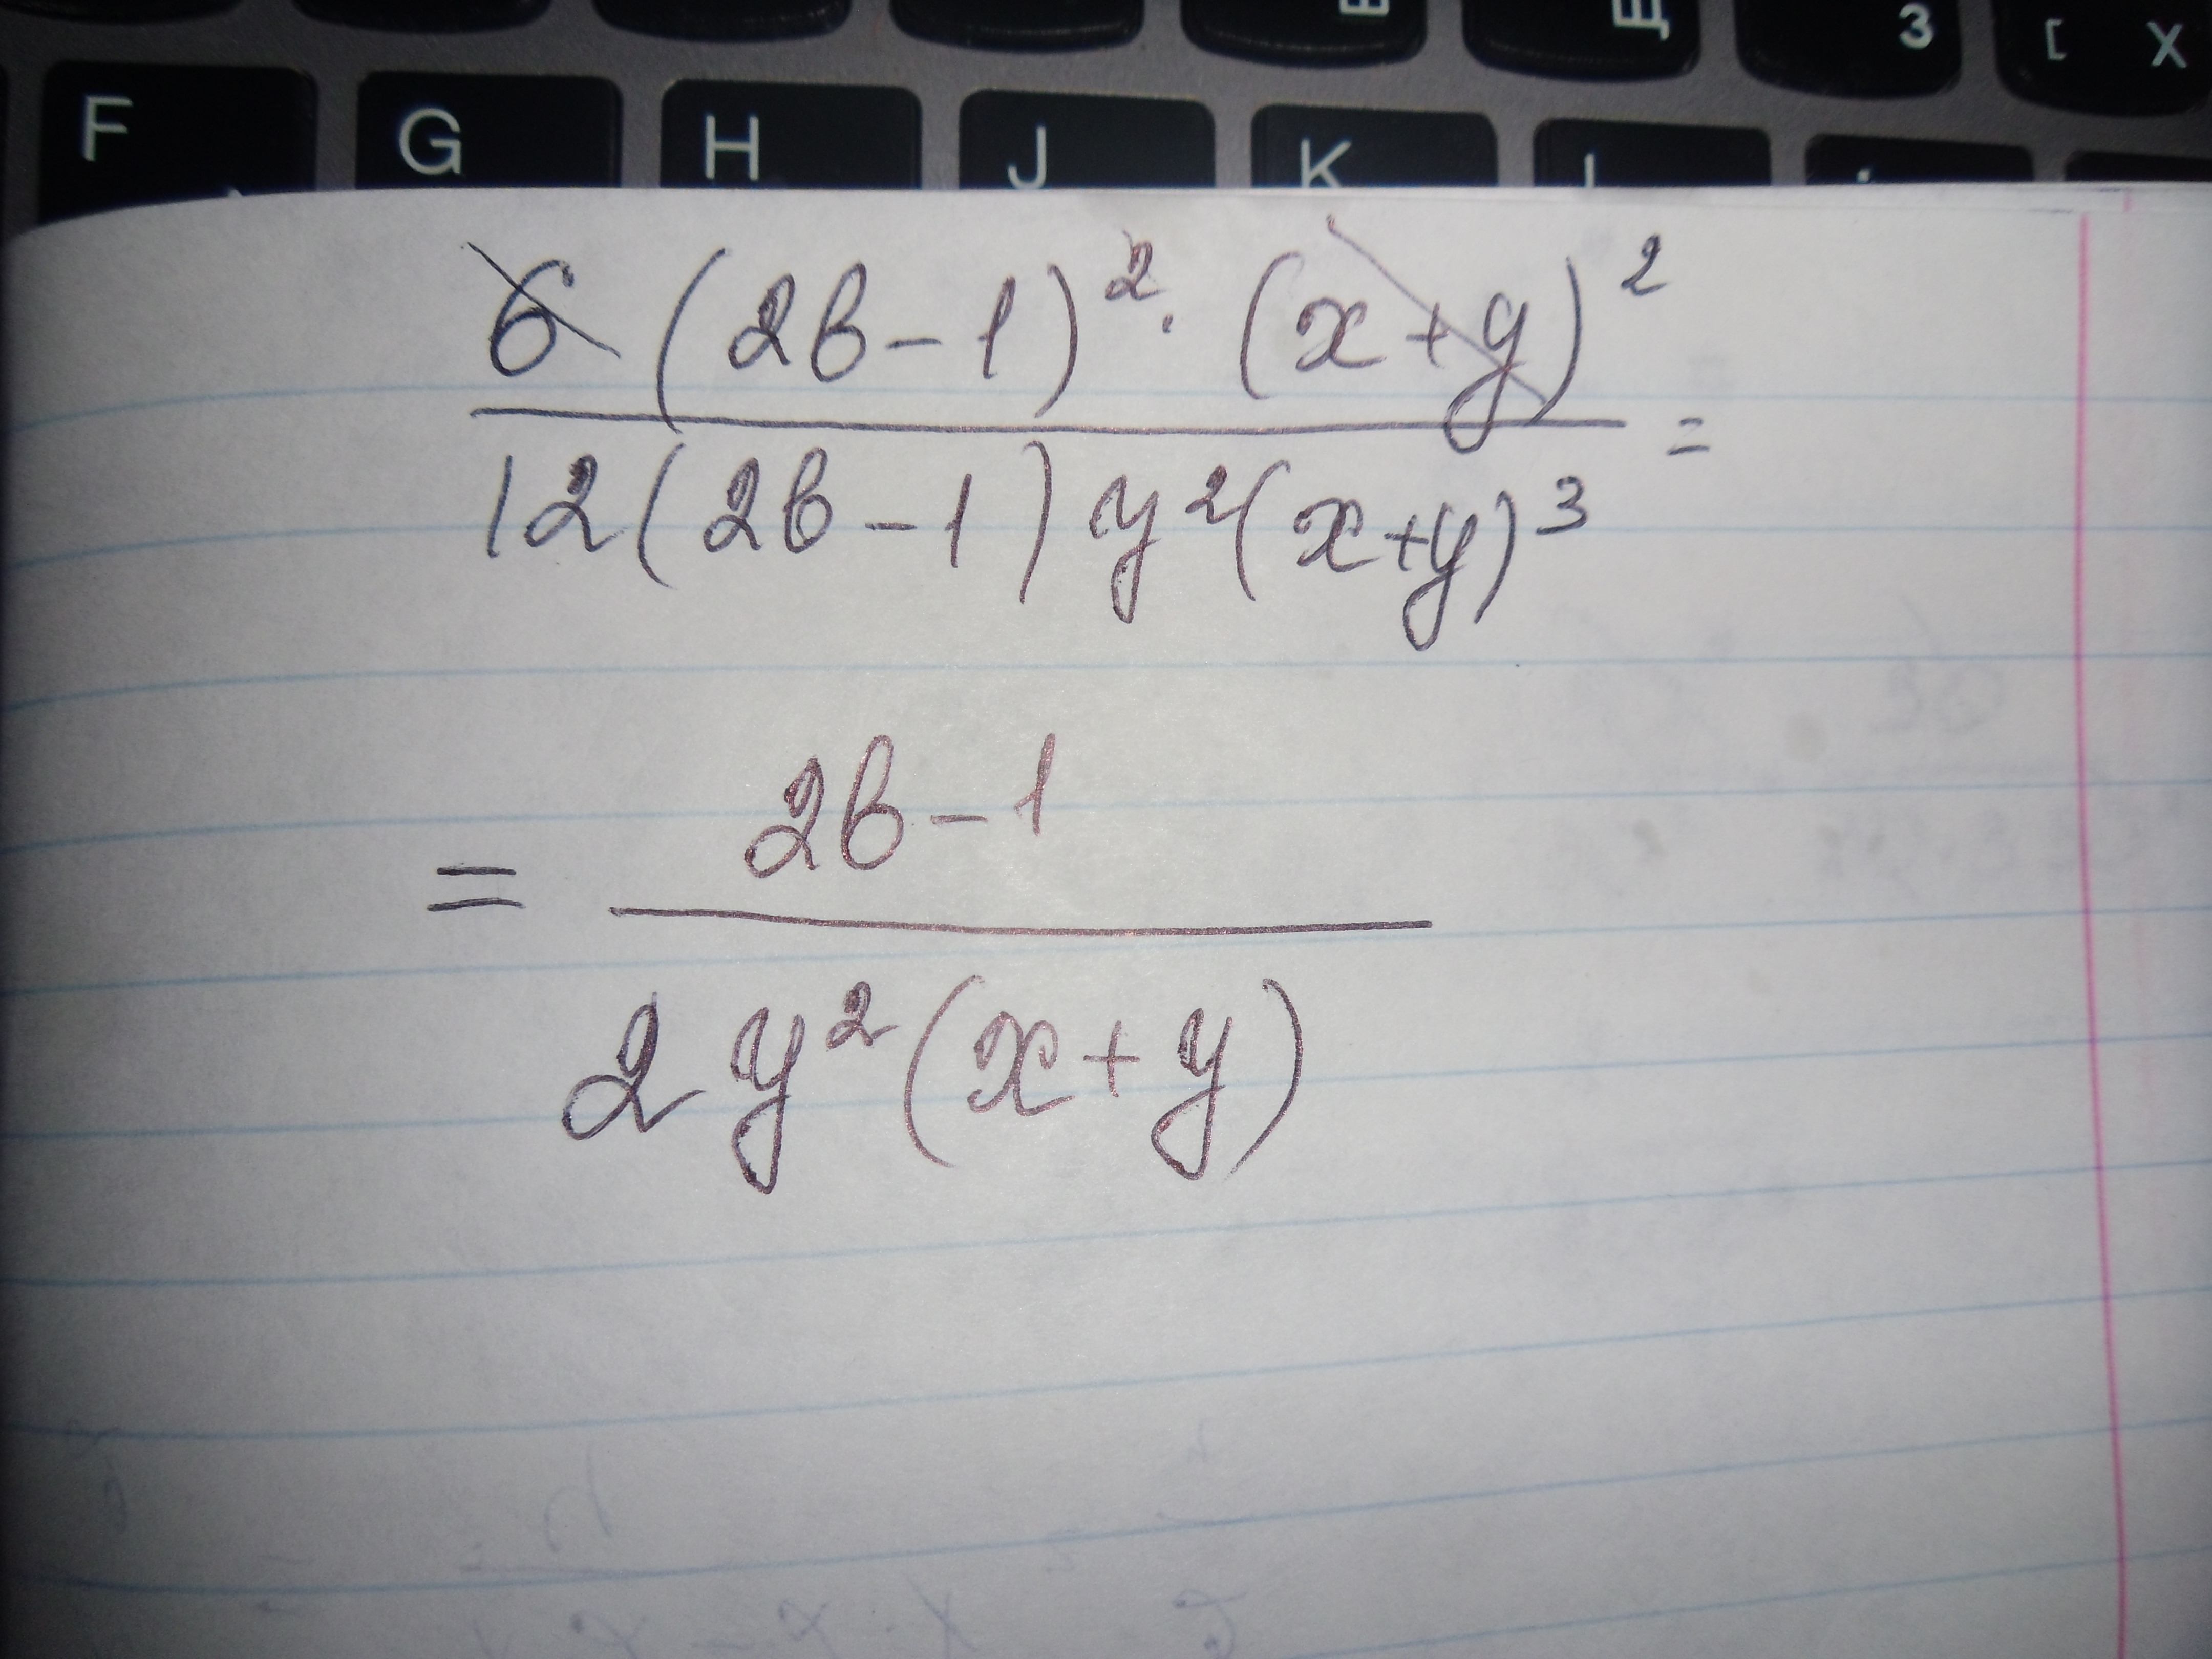 Щ З [ Х
F G H J K
6 (2b-1)² · (x+y)² =
12(2b-1) y²(x+y)³
= 2b-1
2 y² (x+y)